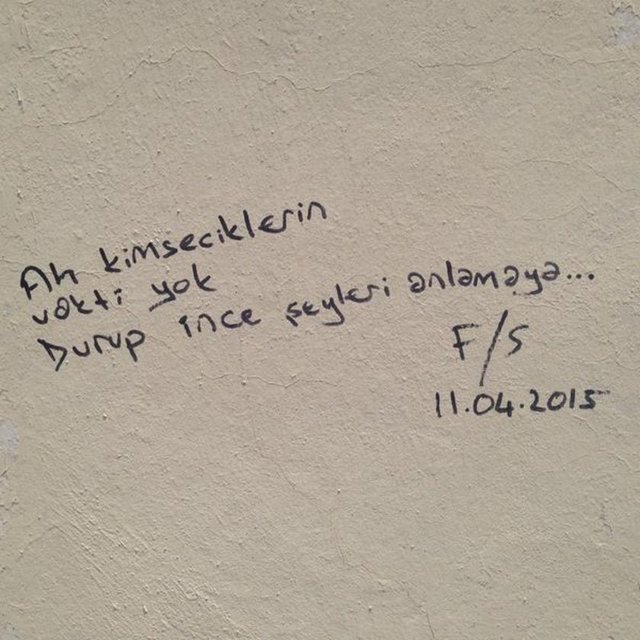 Ah kimseciklerin
vakti yok
Durup ince şeyleri anlamaya...
F/S
11.04.2015